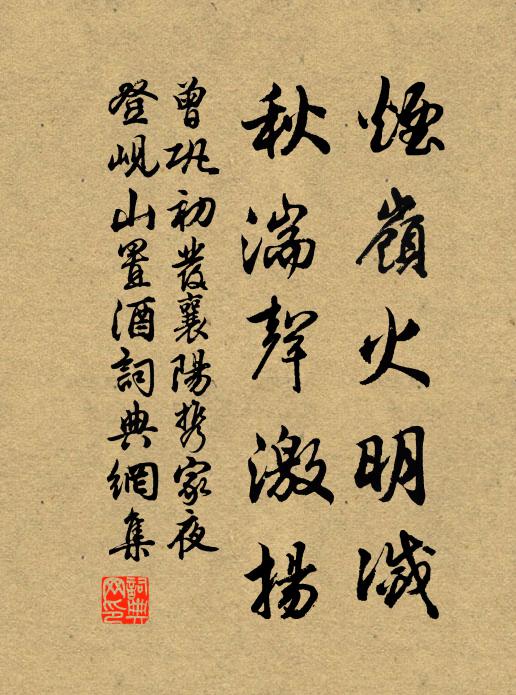 煙嶺火明滅
秋湍聲激揚
曾鞏初發襄陽携家夜
登峴山置酒詞典網集
詞典網印